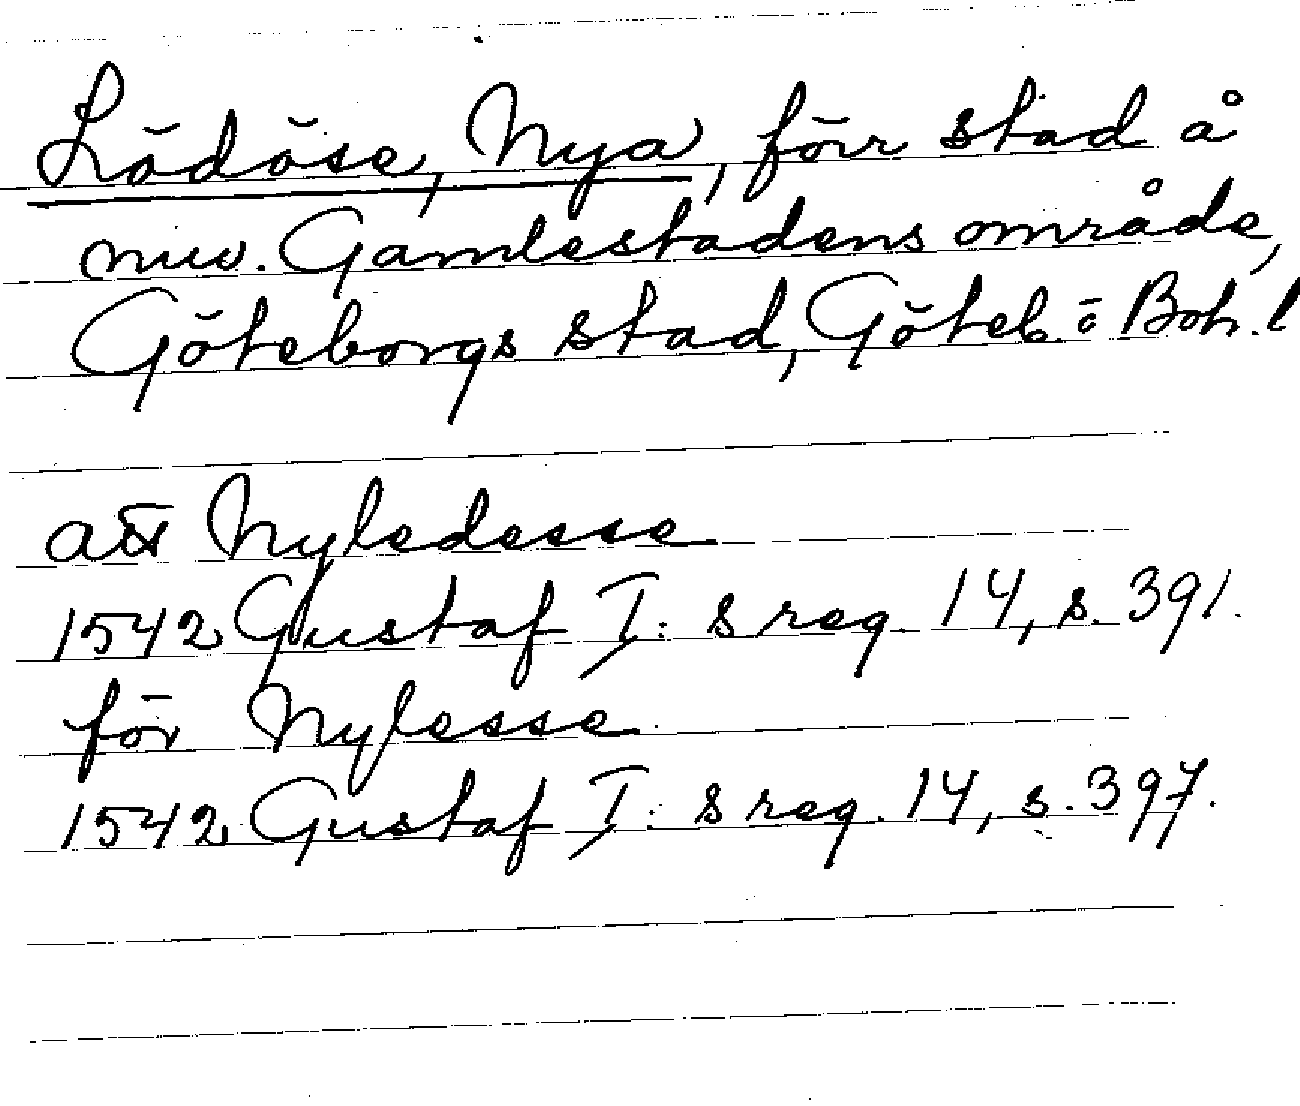 Lödöse, Nya, förr stad å
nuv. Gamlestadens område,
Göteborgs stad, Göteb. o. Boh. l
att Nyledesse
1542 Gustaf I:s reg. 14, s. 391.
för Nylesse
1542 Gustaf I:s reg. 14, s. 397.